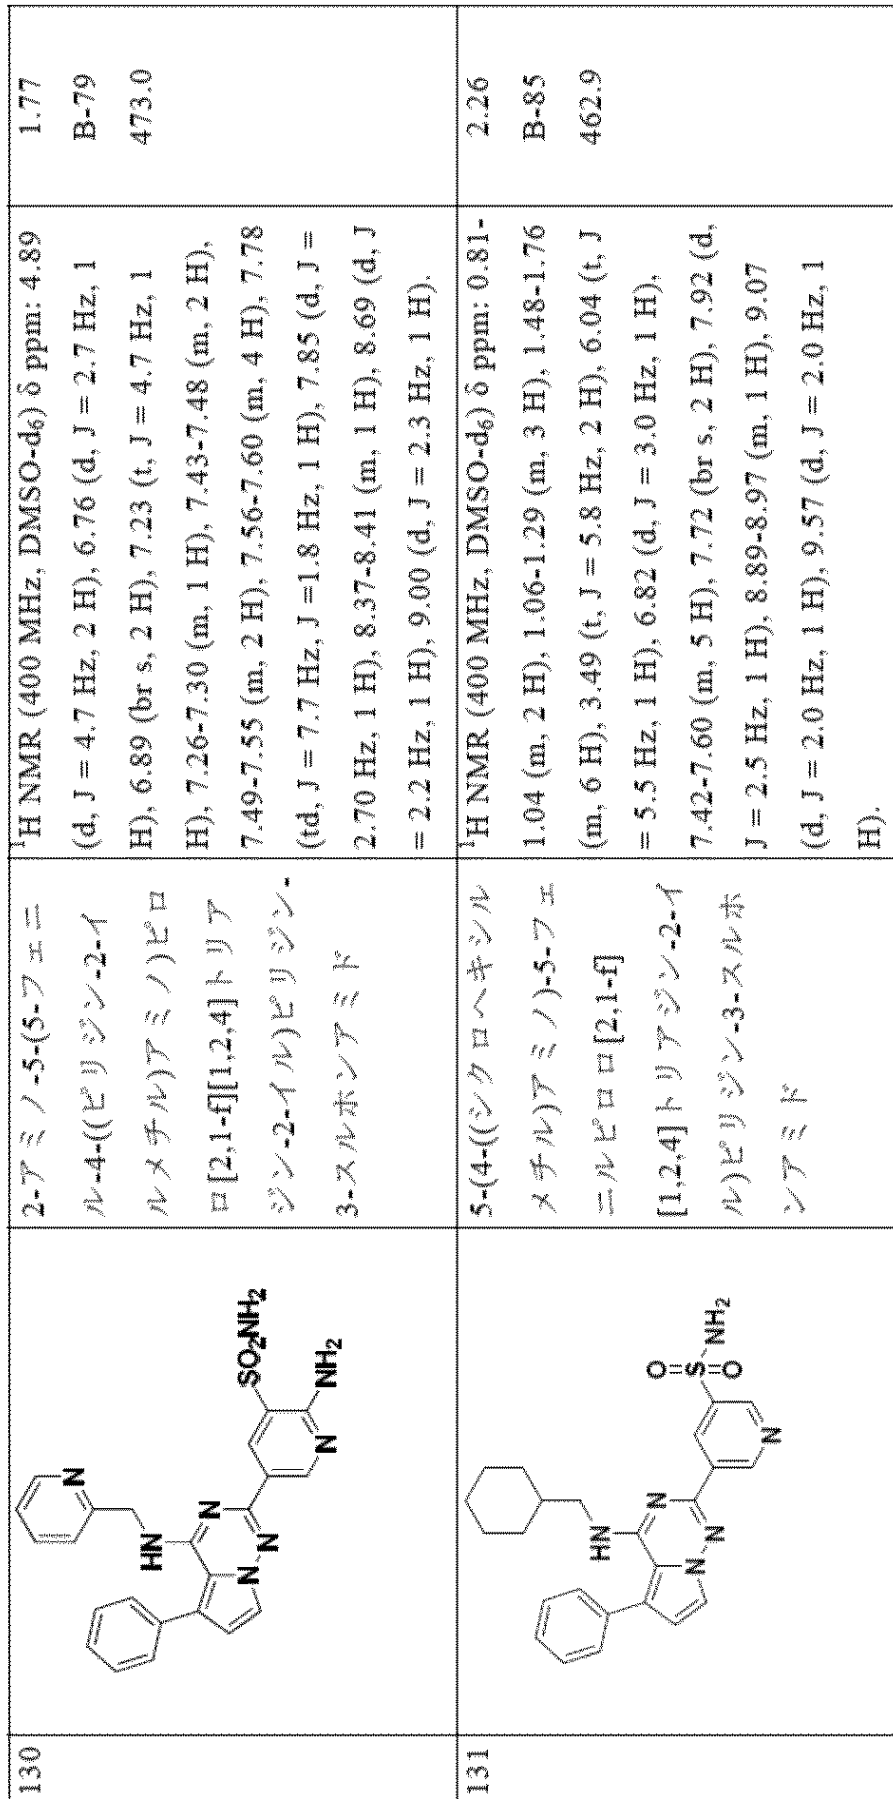 130
HN
N
N
N
N
N
SO2NH2
NH2
2-アミノ-5-(5-フェニ
ル-4-((ピリジン-2-イ
ルメチル)アミノ)ピロ
ロ[2,1-f][1,2,4]トリア
ジン-2-イル)ピリジン-
3-スルホンアミド
¹H NMR (400 MHz, DMSO-d₆) δ ppm: 4.89
(d, J = 4.7 Hz, 2 H), 6.76 (d, J = 2.7 Hz, 1
H), 6.89 (br s, 2 H), 7.23 (t, J = 4.7 Hz, 1
H), 7.26-7.30 (m, 1 H), 7.43-7.48 (m, 2 H),
7.49-7.55 (m, 2 H), 7.56-7.60 (m, 4 H), 7.78
(td, J = 7.7 Hz, J =1.8 Hz, 1 H), 7.85 (d, J =
2.70 Hz, 1 H), 8.37-8.41 (m, 1 H), 8.69 (d, J
= 2.2 Hz, 1 H), 9.00 (d, J = 2.3 Hz, 1 H).
1.77
B-79
473.0
131
HN
N
N
N
N
O
S
O
NH2
5-(4-((シクロヘキシル
メチル)アミノ)-5-フェ
ニルピロロ[2,1-f]
[1,2,4]トリアジン-2-イ
ル)ピリジン-3-スルホ
ンアミド
¹H NMR (400 MHz, DMSO-d₆) δ ppm: 0.81-
1.04 (m, 2 H), 1.06-1.29 (m, 3 H), 1.48-1.76
(m, 6 H), 3.49 (t, J = 5.8 Hz, 2 H), 6.04 (t, J
= 5.5 Hz, 1 H), 6.82 (d, J = 3.0 Hz, 1 H),
7.42-7.60 (m, 5 H), 7.72 (br s, 2 H), 7.92 (d,
J = 2.5 Hz, 1 H), 8.89-8.97 (m, 1 H), 9.07
(d, J = 2.0 Hz, 1 H), 9.57 (d, J = 2.0 Hz, 1
H).
2.26
B-85
462.9